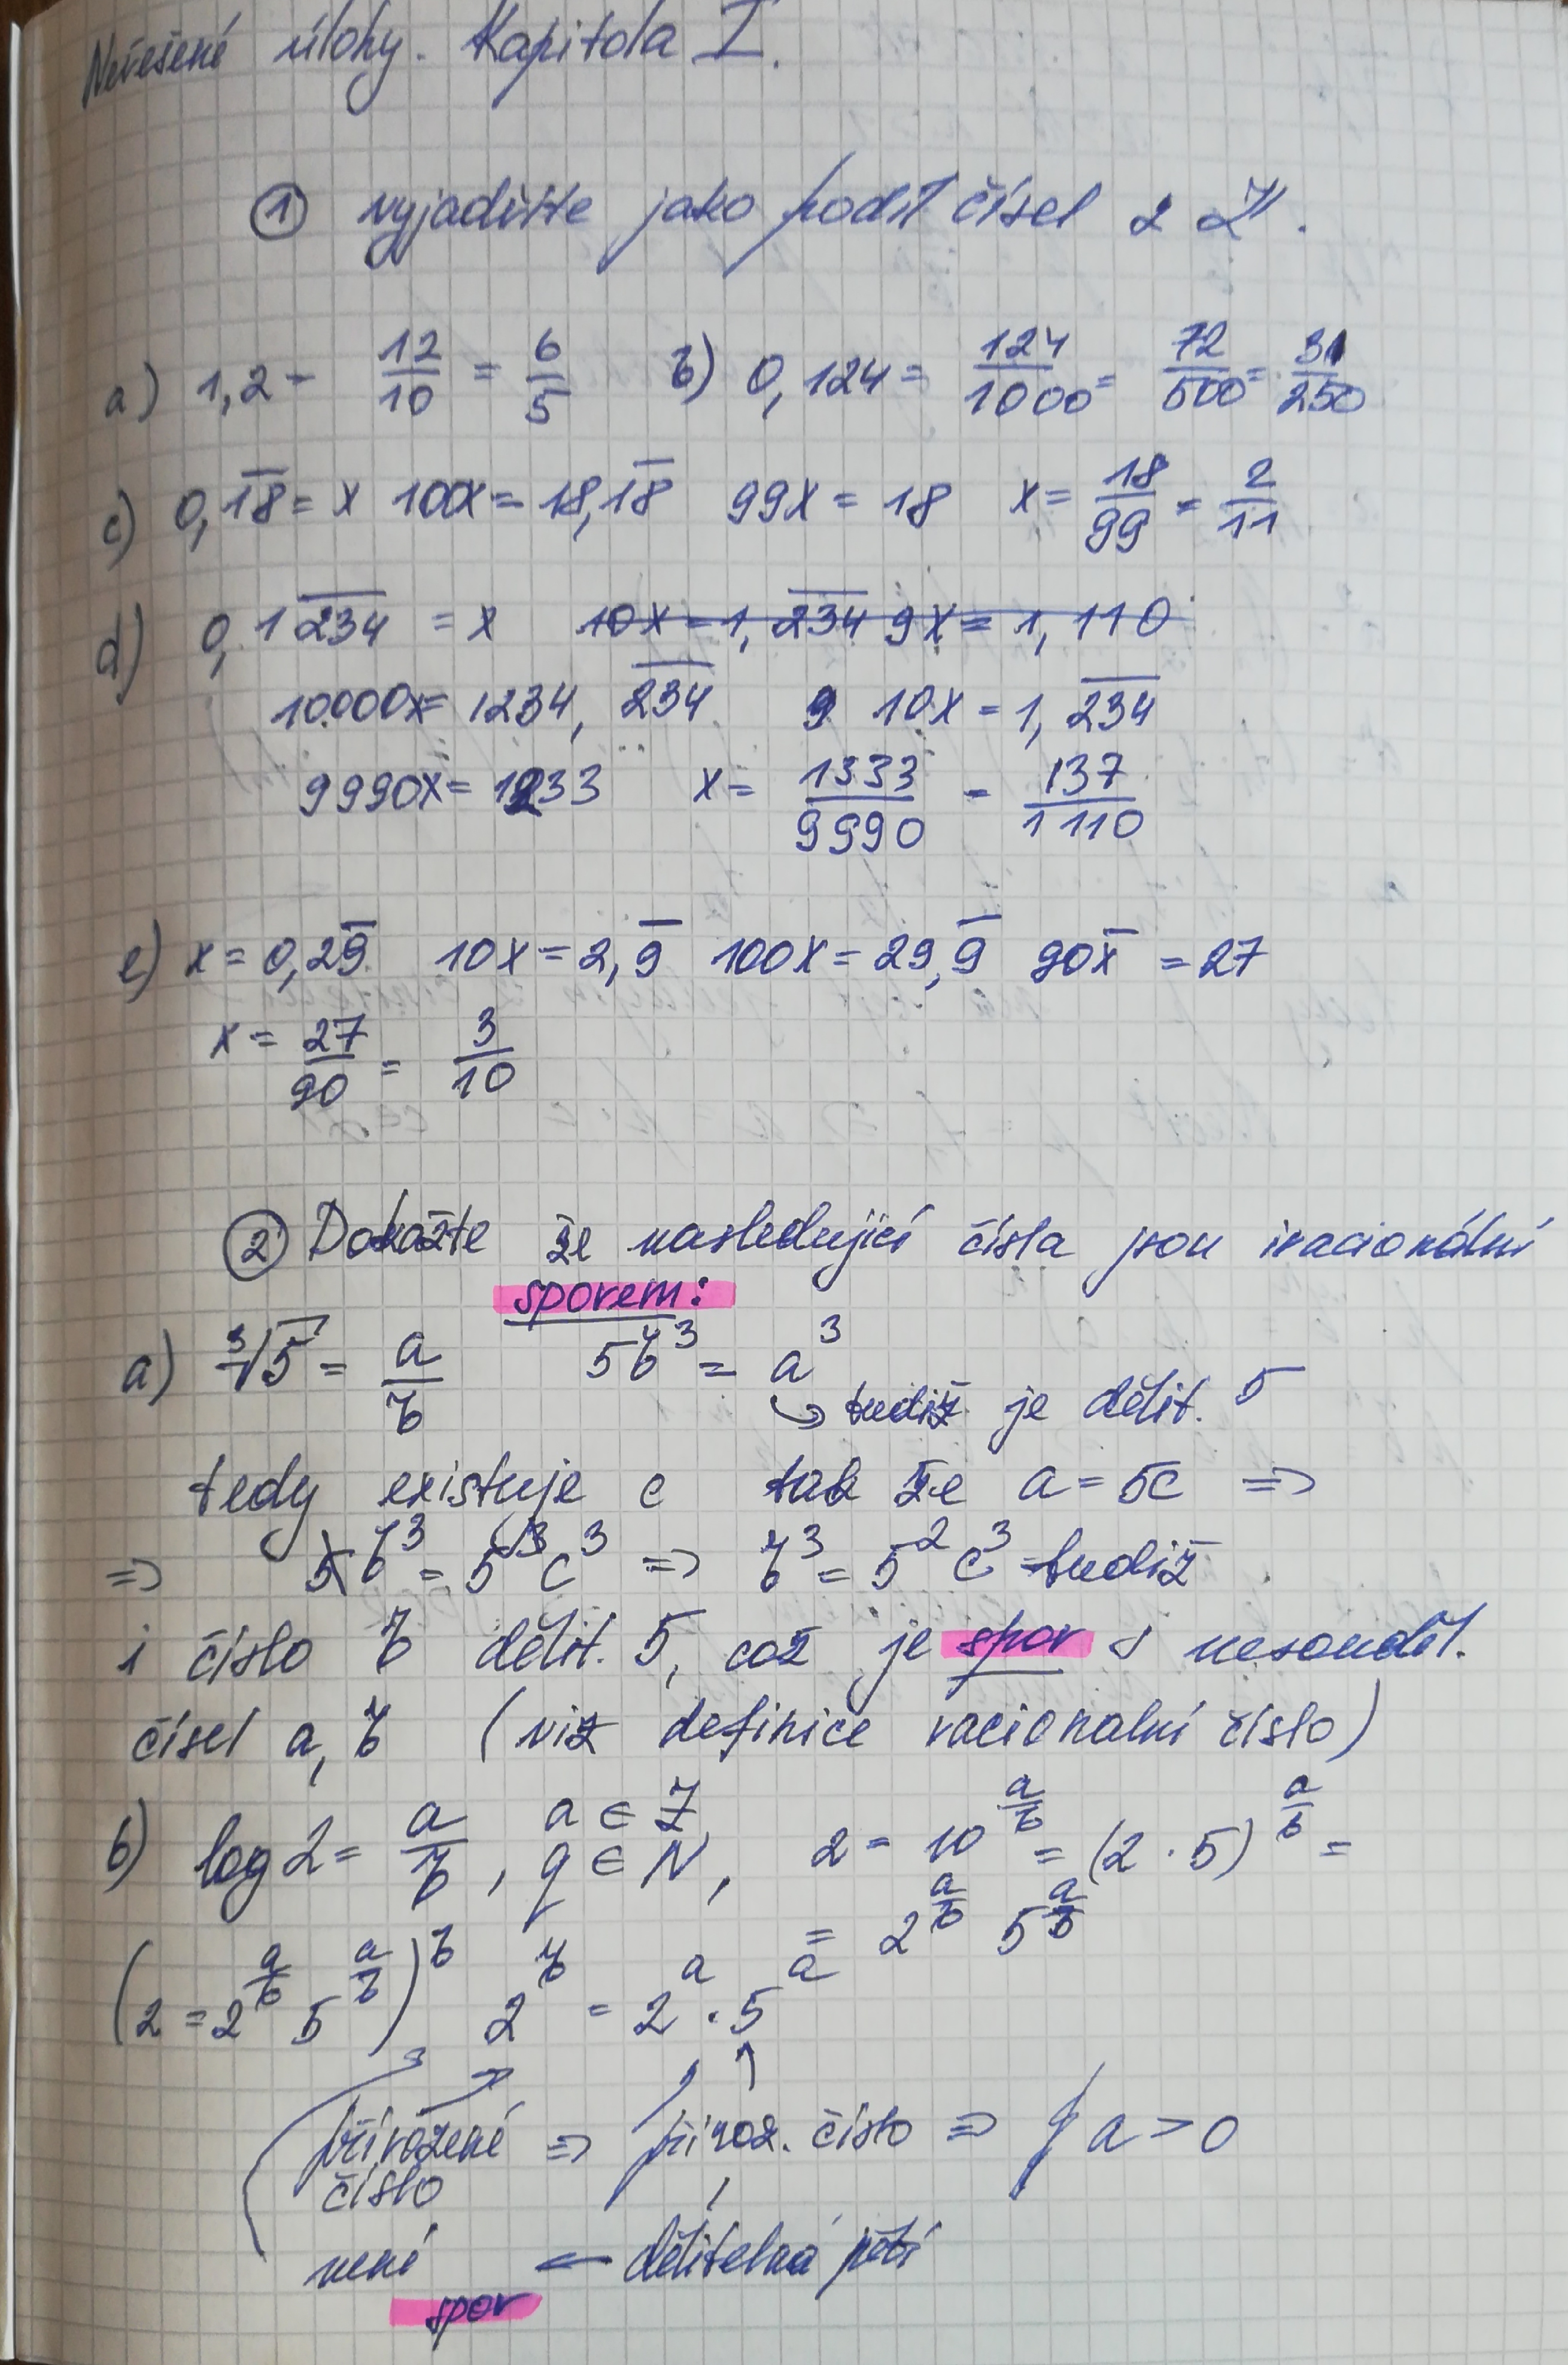 Neřešené úlohy. Kapitola I.
① vyjadřite jako podíl čísel z Z.
a) 1,2 = 12/10 = 6/5 b) 0,124 = 124/1000 = 72/500 = 31/250
c) 0,1̅8̅ = x 100x = 18,1̅8̅ 99x = 18 x = 18/99 = 2/11
d) 0,12̅3̅4̅ = x 10x = 1,2̅3̅4̅ 9x = 1,110
10.000x = 1234,2̅3̅4̅ 10x = 1,2̅3̅4̅
9990x = 1233 x = 1333/9990 = 137/1110
e) x = 0,29̅ 10x = 2,9̅ 100x = 29,9̅ 90x̅ = 27
x = 27/90 = 3/10
② Dokažte že nasledující čísla jsou iracionální
sporem:
a) ³√5 = a/b 5b³ = a³
↪ tudiž je dělit. 5
tedy existuje c tak že a = 5c ⇒
⇒ 5b³ = 5³c³ ⇒ b³ = 5²c³ tudiž
i číslo b dělit. 5, což je spor s nesouděl.
čísel a, b (viz definice racionalní číslo)
b) log 2 = a/b, a ∈ Z, q ∈ N, 2 = 10^(a/b) = (2 · 5)^(a/b) =
= 2^(a/b) 5^(a/b)
(2 = 2^(a/b) 5^(a/b))^b 2^b = 2^a · 5^a
přirozené číslo ⇒ přiroz. číslo ⇒ a > 0
není ← dělitelná pěti
spor